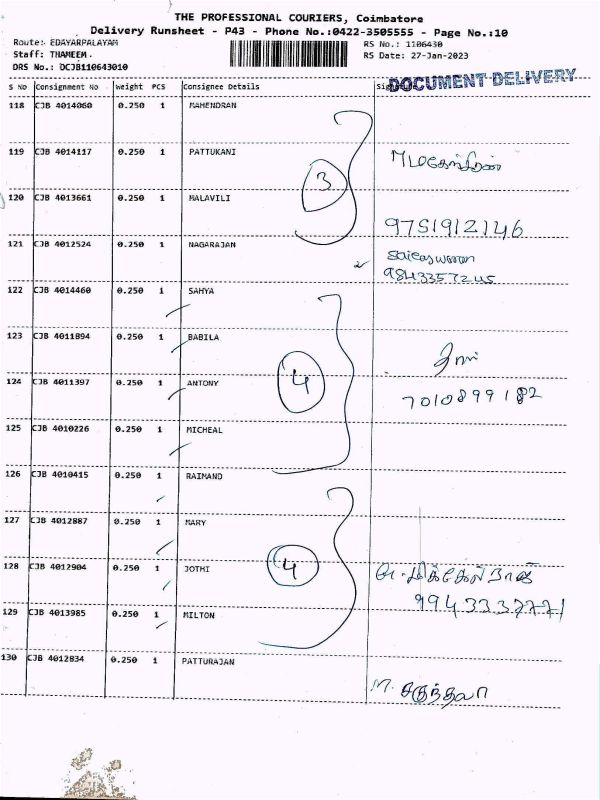 THE PROFESSIONAL COURIERS, Coimbatore
Delivery Runsheet - P43 - Phone No.:0422-3505555 - Page No.:10
Route: EDAYARPALAYAM RS No.: 1106430
Staff: THAMEEM. RS Date: 27-Jan-2023
DRS No.: DCJB110643010
DOCUMENT DELIVERY
S No Consignment No Weight PCS Consignee Details
118 CJB 4014060 0.250 1 MAHENDRAN
119 CJB 4014117 0.250 1 PATTUKANI
3
120 CJB 4013661 0.250 1 MALAVILI
9751912146
121 CJB 4012524 0.250 1 NAGARAJAN
9843357245
122 CJB 4014460 0.250 1 SAHYA
123 CJB 4011894 0.250 1 BABILA
124 CJB 4011397 0.250 1 ANTONY
4
7010899182
125 CJB 4010226 0.250 1 MICHEAL
126 CJB 4010415 0.250 1 RAIMAND
127 CJB 4012887 0.250 1 MARY
128 CJB 4012904 0.250 1 JOTHI
4
129 CJB 4013985 0.250 1 MILTON
9943337771
130 CJB 4012834 0.250 1 PATTURAJAN
M. சகுந்தலா